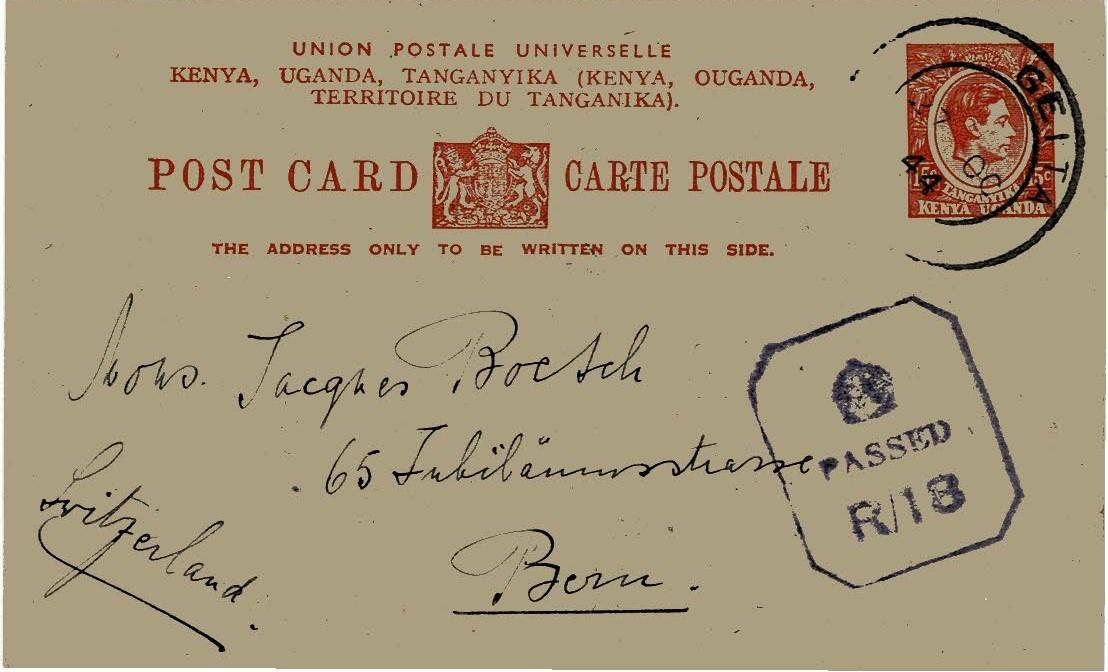 UNION POSTALE UNIVERSELLE
KENYA, UGANDA, TANGANYIKA (KENYA, OUGANDA,
TERRITOIRE DU TANGANIKA).
POST CARD CARTE POSTALE
THE ADDRESS ONLY TO BE WRITTEN ON THIS SIDE.
GEITA
OC
44
15c 15c
TANGANYIKA
KENYA UGANDA
Mons. Jacques Boetsch
65 Jubiläumsstrasse
Bern.
Switzerland.
PASSED
R/18